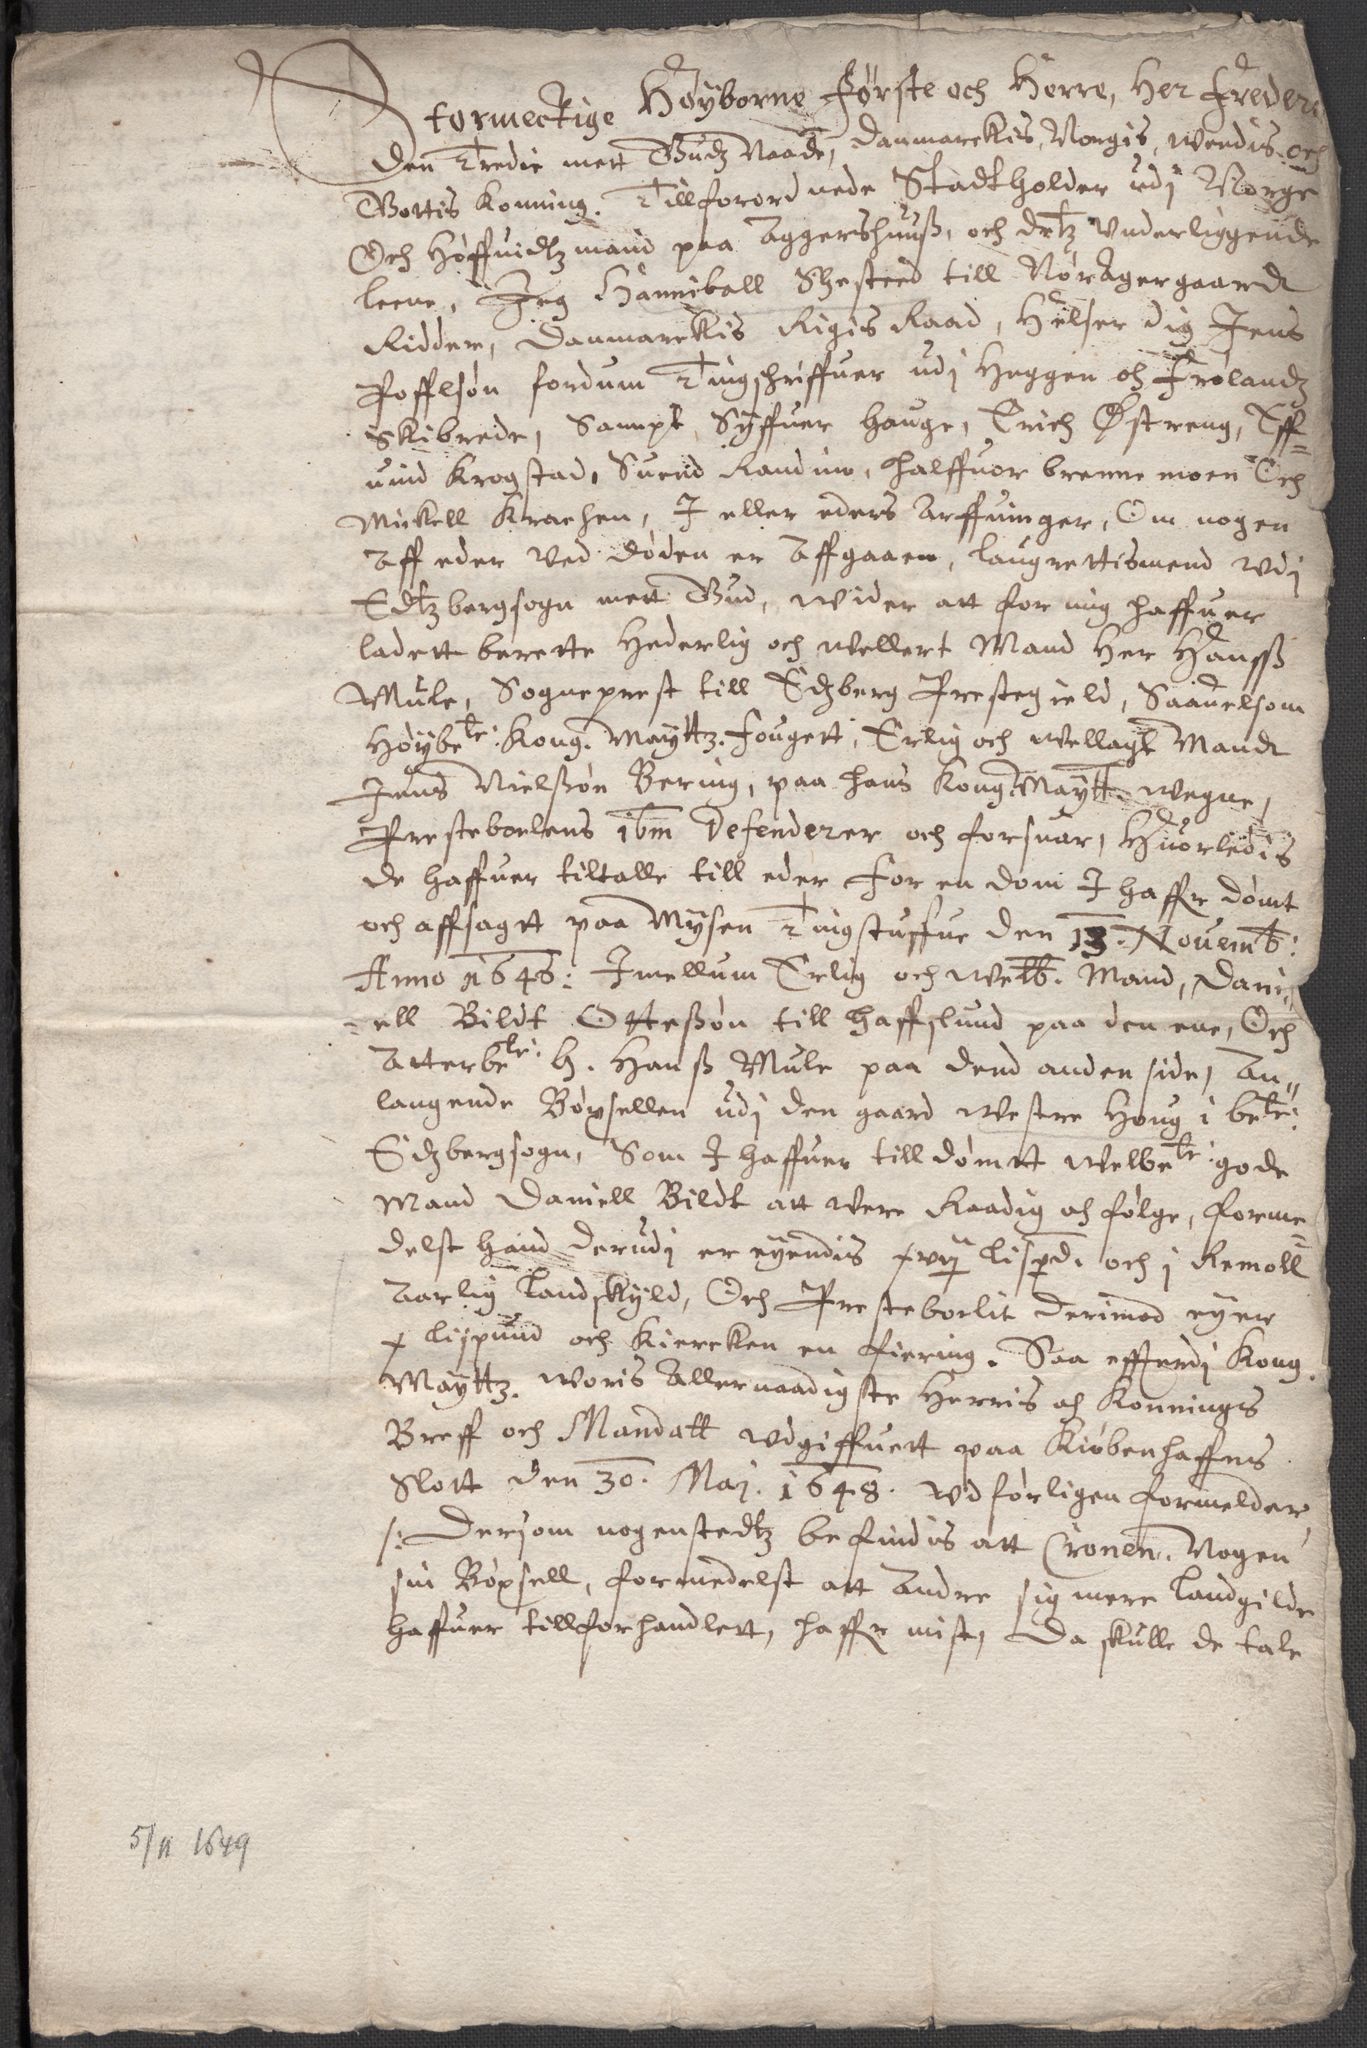 Stormectige Høyborne Første och Herre, Her Frederi
den Tredie mett Gudz Naade, Danmarckis, Norgis, Wendis och
Gottis Konning. Tillforordnede Stadtholder udj Norge
Och Høffuidtzmand paa Aggershuuß, och detz Underliggende
leene, Jeg Hanniball Sehested till Nøragergaardt
Ridder, Danmarckis Rigis Raad, Helser dig Jens
Poffelsøn fordum Tingschriffuer udj Heggen och Frølandz
Skibrede, Sampt Syffuer Hauge, Erich Østreng, Eff=
uind Krogstad, Suend Randim, Halffuor brennemoen Och
Mickell Krachen, J eller eders Arffuinger, Om nogen
Aff eder ved døden er Affgaaen, laugrettismend vdj
Edtzbergsogn mett Gud, wider att for mig haffuer
ladett berette Hederlig och wellert Mand Her Hanß
Mule, Sogneprest till Edzberg Prestegield, Saauelsom
Høybete: Kong. Maytz. Fougett, Erlig och wellagt Mandt
Jens Nielßøn Bering, paa hans Kong Maytt: wegne,
Presteboelens ibm defenderer och forsuar, Huorledis
de haffuer tiltalle till eder For en dom J haffr dømt
och affsagtt paa Mysen Tingstuffue den 13. Nouemb:
Anno 1648: Jmellum Erlig och Welb. Mand, Dani=
=ell Bildt Otteßøn till Haffslund paa den ene, Och
Atterbete: H. Hanß Mule paa dend anden side, An=
langende Bøxsellen udj den gaard Westre Houg i bete:
Edzbergsogn, Som J haffuer till dømtt Welbete: gode
Mand Daniell Bildt att were Raadig och følge, forme=
delst hand derudj er eyendis xvij lispd. och j Remoll
Aarlig landskyld, Och Presteborlit derimod eyer
x lispund och Kiercken en fiering. Saa effterdj Kong.
Maytz. woris Allernaadigste Herris och Konnings
Breff och Mandatt udgiffuett paa Kiøbenhaffns
Slott den 30. Maj. 1648. vdførligen formelder
/: Dersom nogenstedtz befindis att Cronen. Nogen
sin Bøxsell, formedelst att Andre sig mere landgilde
haffuer tillforhandlett, haffr mist, Da skulle de tale
5/11 1649